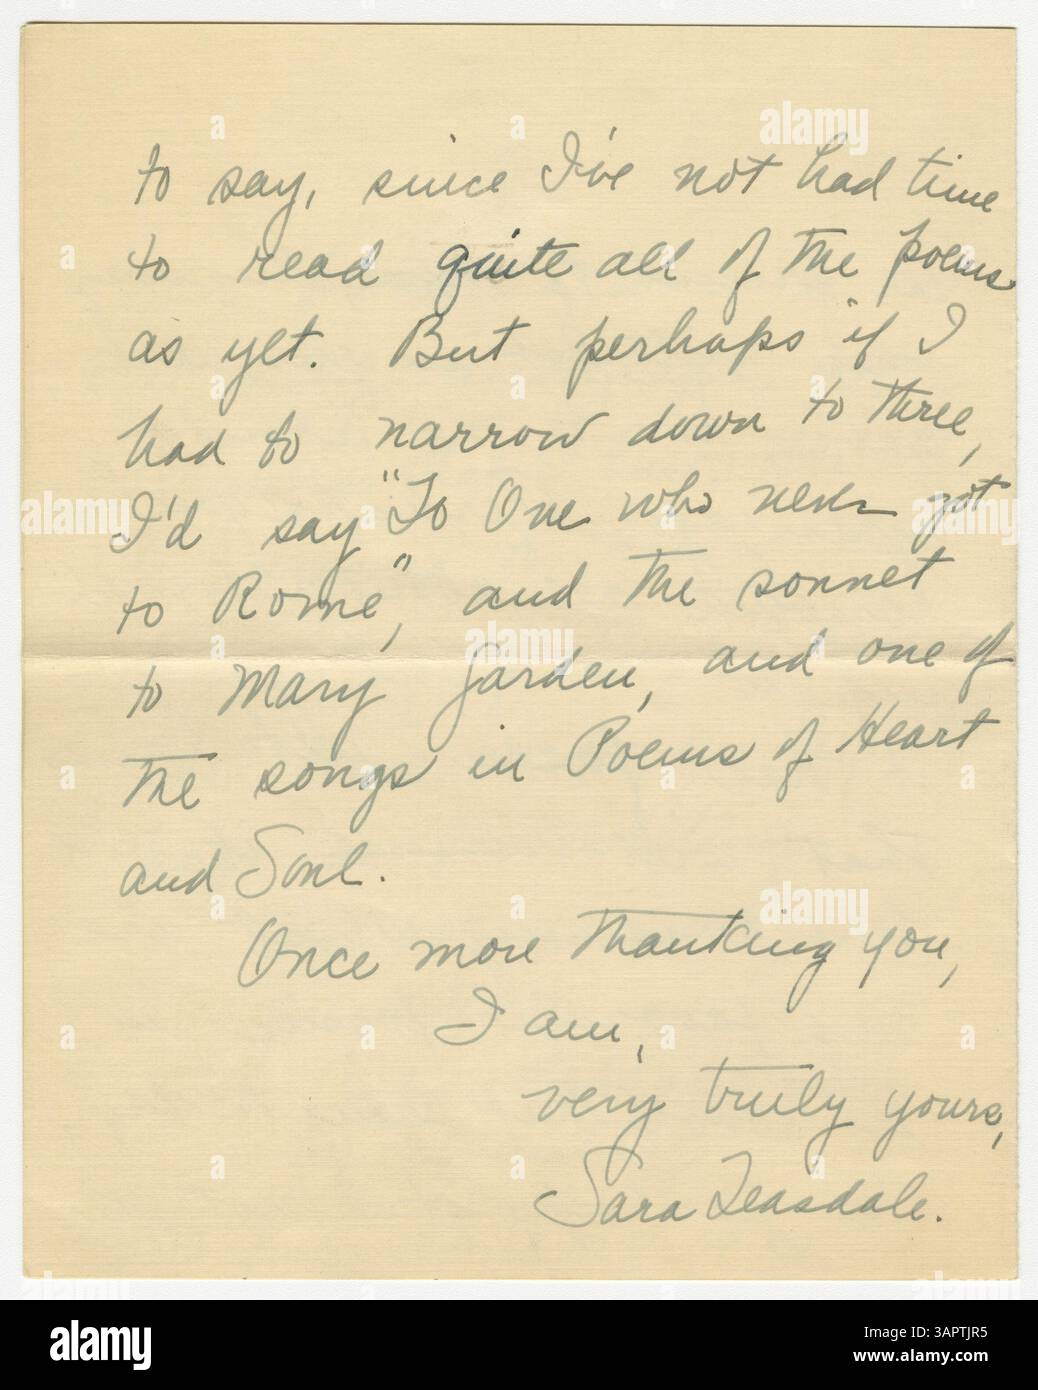 to say, since I've not had time
to read quite all of the poems
as yet. But perhaps if I
had to narrow down to three,
I'd say "To One who never got
to Rome", and the sonnet
to Mary Garden, and one of
the songs in Poems of Heart
and Soul.
Once more thanking you,
I am,
very truly yours,
Sara Teasdale.
alamy
Image ID: 3APTJR5
www.alamy.com